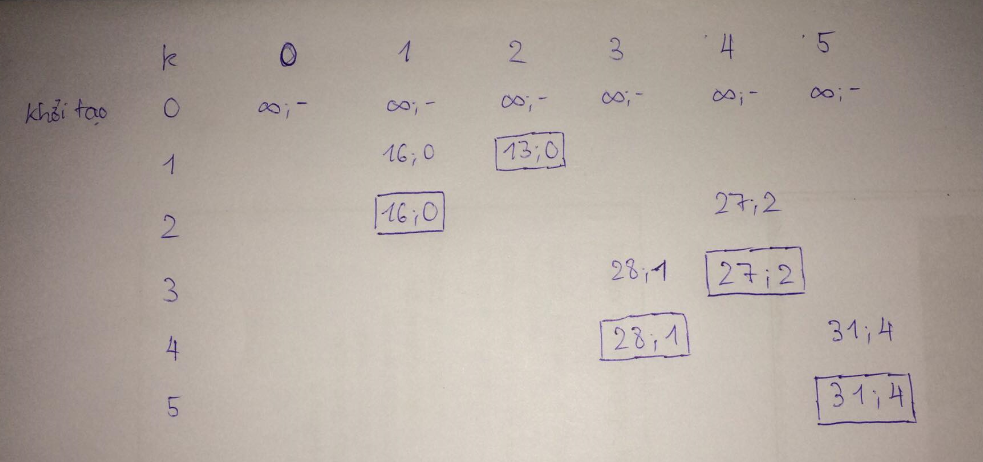 k 0 1 2 3 4 5
khởi tạo 0 ∞;- ∞;- ∞;- ∞;- ∞;- ∞;-
1 16;0 13;0
2 16;0 27;2
3 28;1 27;2
4 28;1 31;4
5 31;4